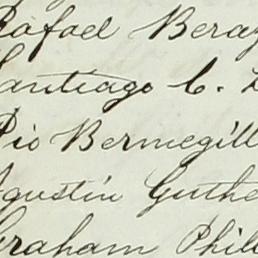 Rafael Beraz
Santiago C. L
Pio Bermegill
Agustin Guthe
Graham Phil